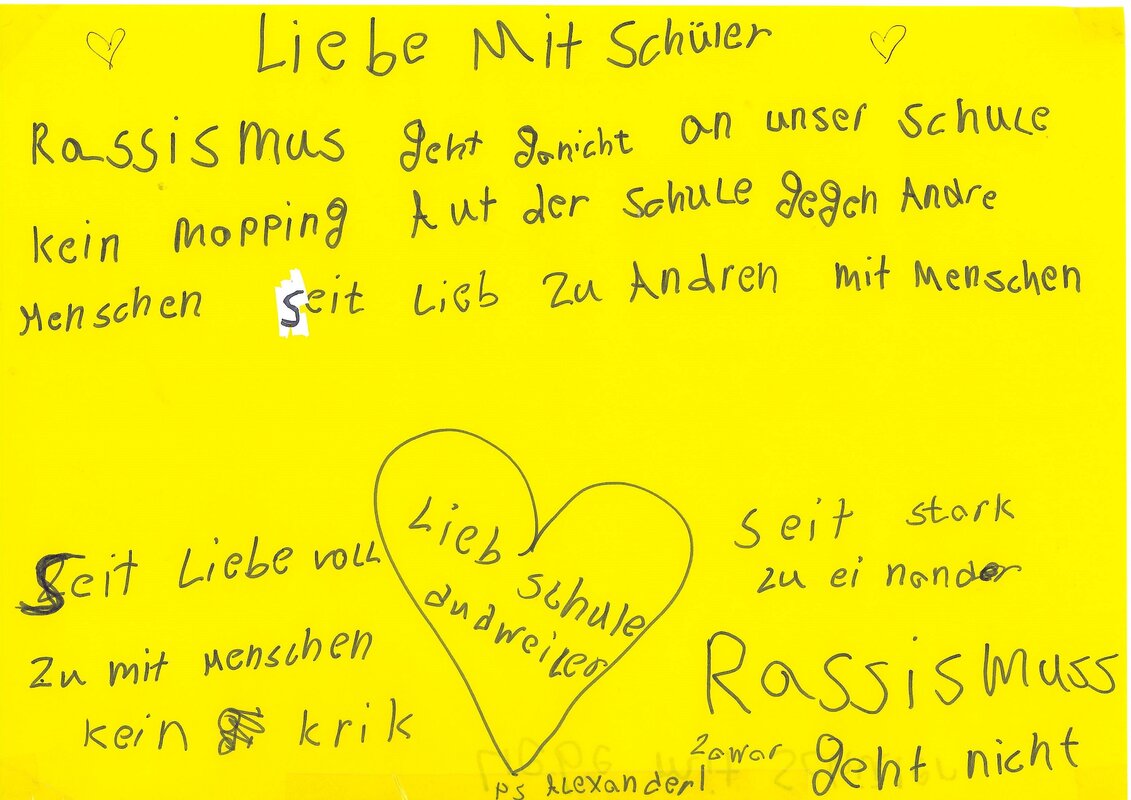 Liebe Mit Schüler
Rassismus geht garnicht an unser Schule
kein Mopping Auf der Schule gegen Andre
Menschen Seit Lieb zu Andren mit Menschen
Seit Liebe voll
zu mit Menschen
kein krik
Lieb Schule
dudweiler
Seit stark
zu ei nander
Rassismuss
geht nicht
ps Alexander